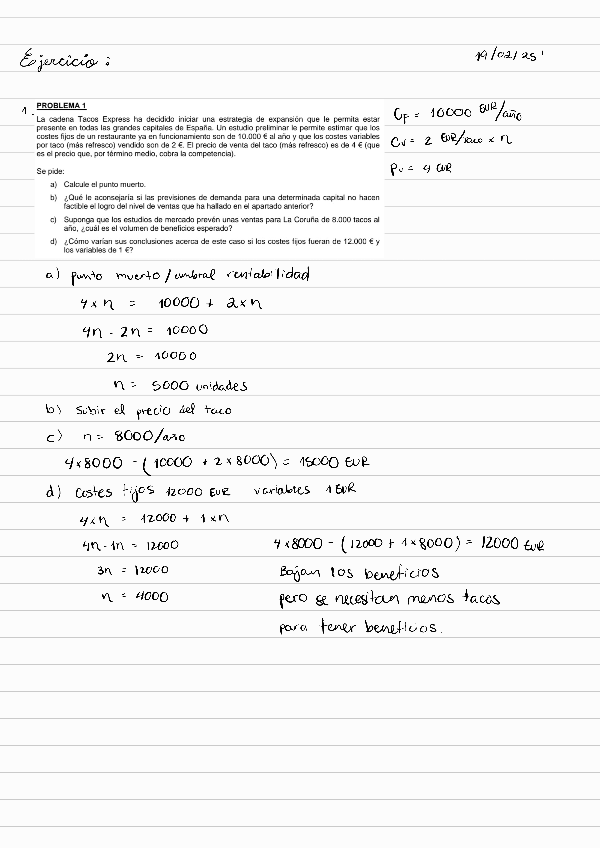 Ejercicio:
19/02/25
1.
PROBLEMA 1
La cadena Tacos Express ha decidido iniciar una estrategia de expansión que le permita estar
presente en todas las grandes capitales de España. Un estudio preliminar le permite estimar que los
costes fijos de un restaurante ya en funcionamiento son de 10.000 € al año y que los costes variables
por taco (más refresco) vendido son de 2 €. El precio de venta del taco (más refresco) es de 4 € (que
es el precio que, por término medio, cobra la competencia).
Se pide:
a) Calcule el punto muerto.
b) ¿Qué le aconsejaría si las previsiones de demanda para una determinada capital no hacen
factible el logro del nivel de ventas que ha hallado en el apartado anterior?
c) Suponga que los estudios de mercado prevén unas ventas para La Coruña de 8.000 tacos al
año, ¿cuál es el volumen de beneficios esperado?
d) ¿Cómo varían sus conclusiones acerca de este caso si los costes fijos fueran de 12.000 € y
los variables de 1 €?
CF = 10000 EUR/año
CV = 2 EUR/taco × n
Pv = 4 EUR
a) punto muerto/umbral rentabilidad
4×n = 10000 + 2×n
4n - 2n = 10000
2n = 10000
n = 5000 unidades
b) Subir el precio del taco
c) n = 8000/año
4×8000 - (10000 + 2×8000) = 15000 EUR
d) costes fijos 12000 EUR variables 1 EUR
4×n = 12000 + 1×n
4n - 1n = 12000
3n = 12000
n = 4000
4×8000 - (12000 + 1×8000) = 12000 EUR
Bajan los beneficios
pero se necesitan menos tacos
para tener beneficios.